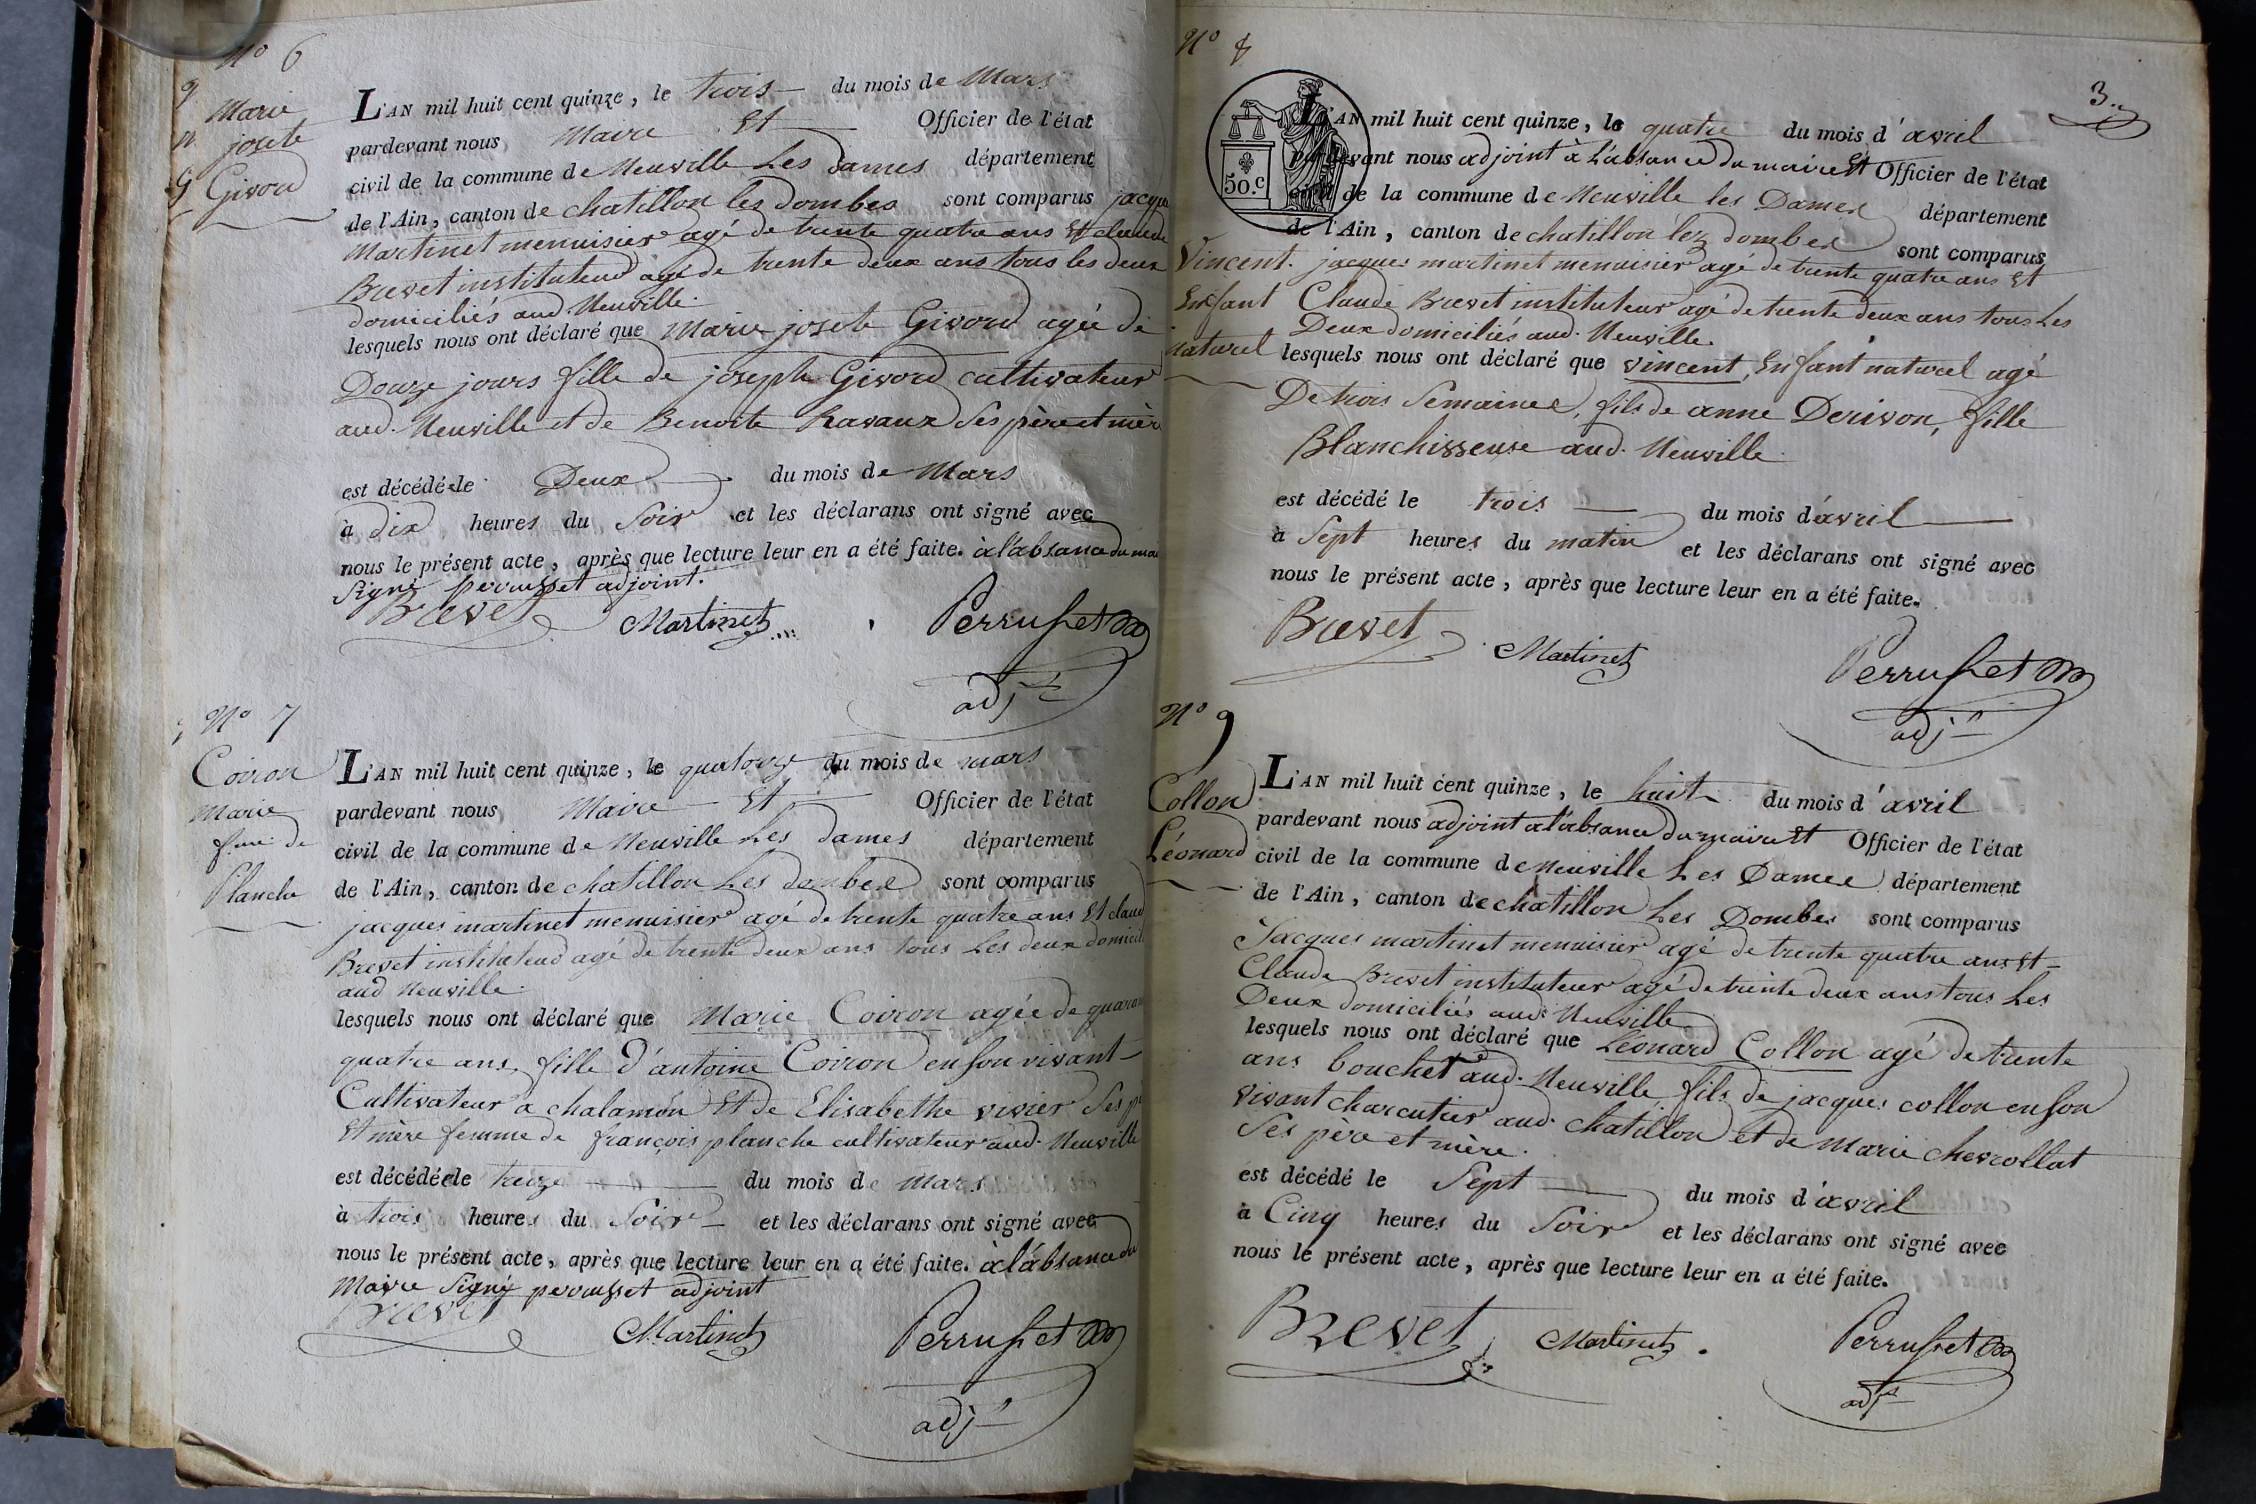 N° 6
Marie
josete
Givord
L'AN mil huit cent quinze, le trois du mois de Mars
pardevant nous Maire Et Officier de l'état
civil de la commune de Neuville Les Dames département
de l'Ain, canton de chatillon les dombes sont comparus jacque
Martinet menuisier agé de trente quatre ans Et claude
Brevet instituteur agé de trente deux ans tous les deux
domiciliés aud. Neuville.
lesquels nous ont déclaré que Marie josete Givord agée de
Douze jours fille de joseph Givord cultivateur
aud. Neuville et de Benoite Ravaux Ses père et mèr
est décédée le Deux du mois de Mars
à dix heures du Soir et les déclarans ont signé avec
nous le présent acte, après que lecture leur en a été faite. à l'absance du mai
Signé perrusset adjoint.
Brevet Martinet Perrusset
adjt
N° 7
Coiron
Marie
fme de
Planche
L'AN mil huit cent quinze, le quatorze du mois de mars
pardevant nous Maire Et Officier de l'état
civil de la commune de Neuville Les dames département
de l'Ain, canton de chatillon Les dombes sont comparus
jacques martinet menuisier agé de trente quatre ans Et claud
Brevet instituteur agé de trente deux ans tous Les deux domicil
aud Neuville.
lesquels nous ont déclaré que Marie Coiron agée de quaran
quatre ans, fille d'antoine Coiron en son vivant
Cultivateur a chalamon Et de Elisabethe vivier Ses p
Et mère femme de françois planche cultivateur aud. Neuville
est décédée le treize du mois de Mars
à trois heures du Soir et les déclarans ont signé avec
nous le présent acte, après que lecture leur en a été faite. à l'absance du
Maire Signé perrusset adjoint
Brevet Martinet Perrusset
adjt
N° 8
3.
50.c
L'AN mil huit cent quinze, le quatre du mois d'avril
pardevant nous adjoint à L'absance du maire Et Officier de l'état
civil de la commune de Neuville les Dames département
de l'Ain, canton de chatillon lez dombes sont comparus
Vincent.
Enfant
naturel
jacques martinet menuisier agé de trente quatre ans Et
Claude Brevet instituteur agé de trente deux ans tous Les
Deux domiciliés aud. Neuville.
lesquels nous ont déclaré que vincent, Enfant naturel agé
De trois Semaines, fils de anne Derivon, fille
Blanchisseuse aud. Neuville.
est décédé le trois du mois d'avril
à Sept heures du matin et les déclarans ont signé avec
nous le présent acte, après que lecture leur en a été faite.
Brevet Martinet Perrusset
adjt
N° 9
Collon
Léonard
L'AN mil huit cent quinze, le huit du mois d'avril
pardevant nous adjoint a l'absance du maire Et Officier de l'état
civil de la commune de Neuville Les Dames département
de l'Ain, canton de chatillon Les Dombes sont comparus
Jacques martinet menuisier agé de trente quatre ans Et
Claude Brevet instituteur agé de trente deux ans tous Les
Deux domiciliés aud. Neuville
lesquels nous ont déclaré que Léonard Collon agé de trente
ans boucher aud. Neuville, fils de jacques collon en son
vivant charcutier aud. chatillon et de Marie chevrollat
Ses père et mère.
est décédé le Sept du mois d'avril
à Cinq heures du Soir et les déclarans ont signé avec
nous le présent acte, après que lecture leur en a été faite.
Brevet Martinet. Perrusset
adjt